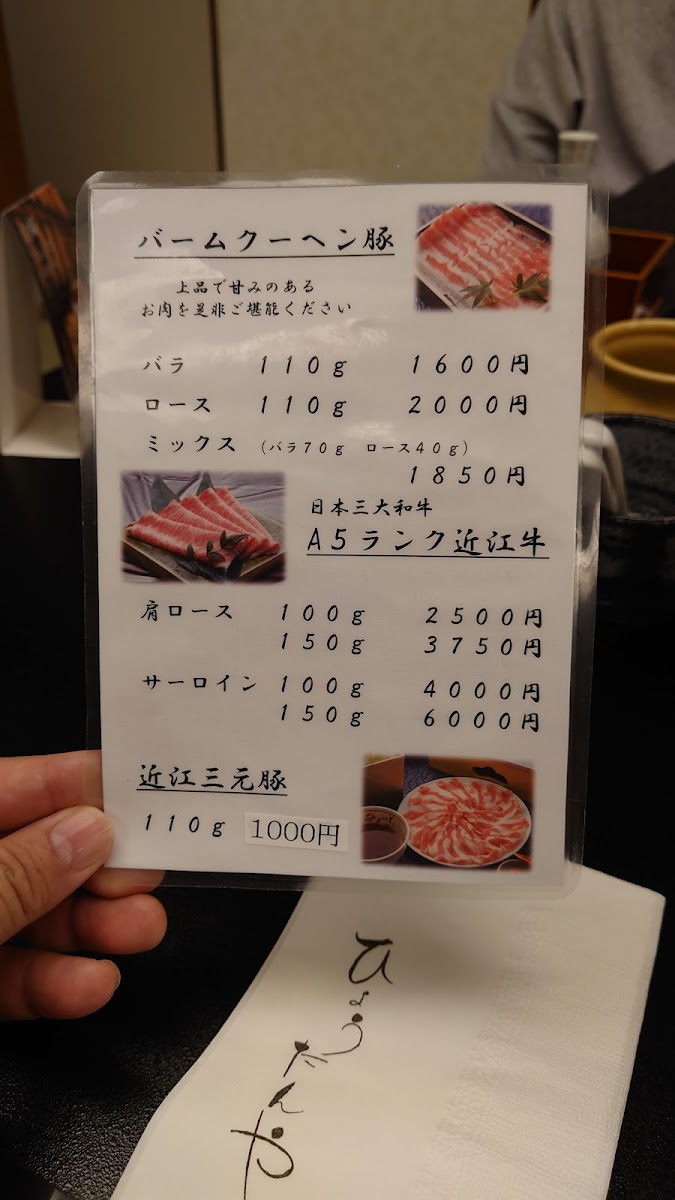 バームクーヘン豚
上品で甘みのある
お肉を是非ご堪能ください
バラ 110g 1600円
ロース 110g 2000円
ミックス (バラ70g ロース40g)
1850円
日本三大和牛
A5ランク近江牛
肩ロース 100g 2500円
150g 3750円
サーロイン 100g 4000円
150g 6000円
近江三元豚
110g 1000円
ひょうたんや